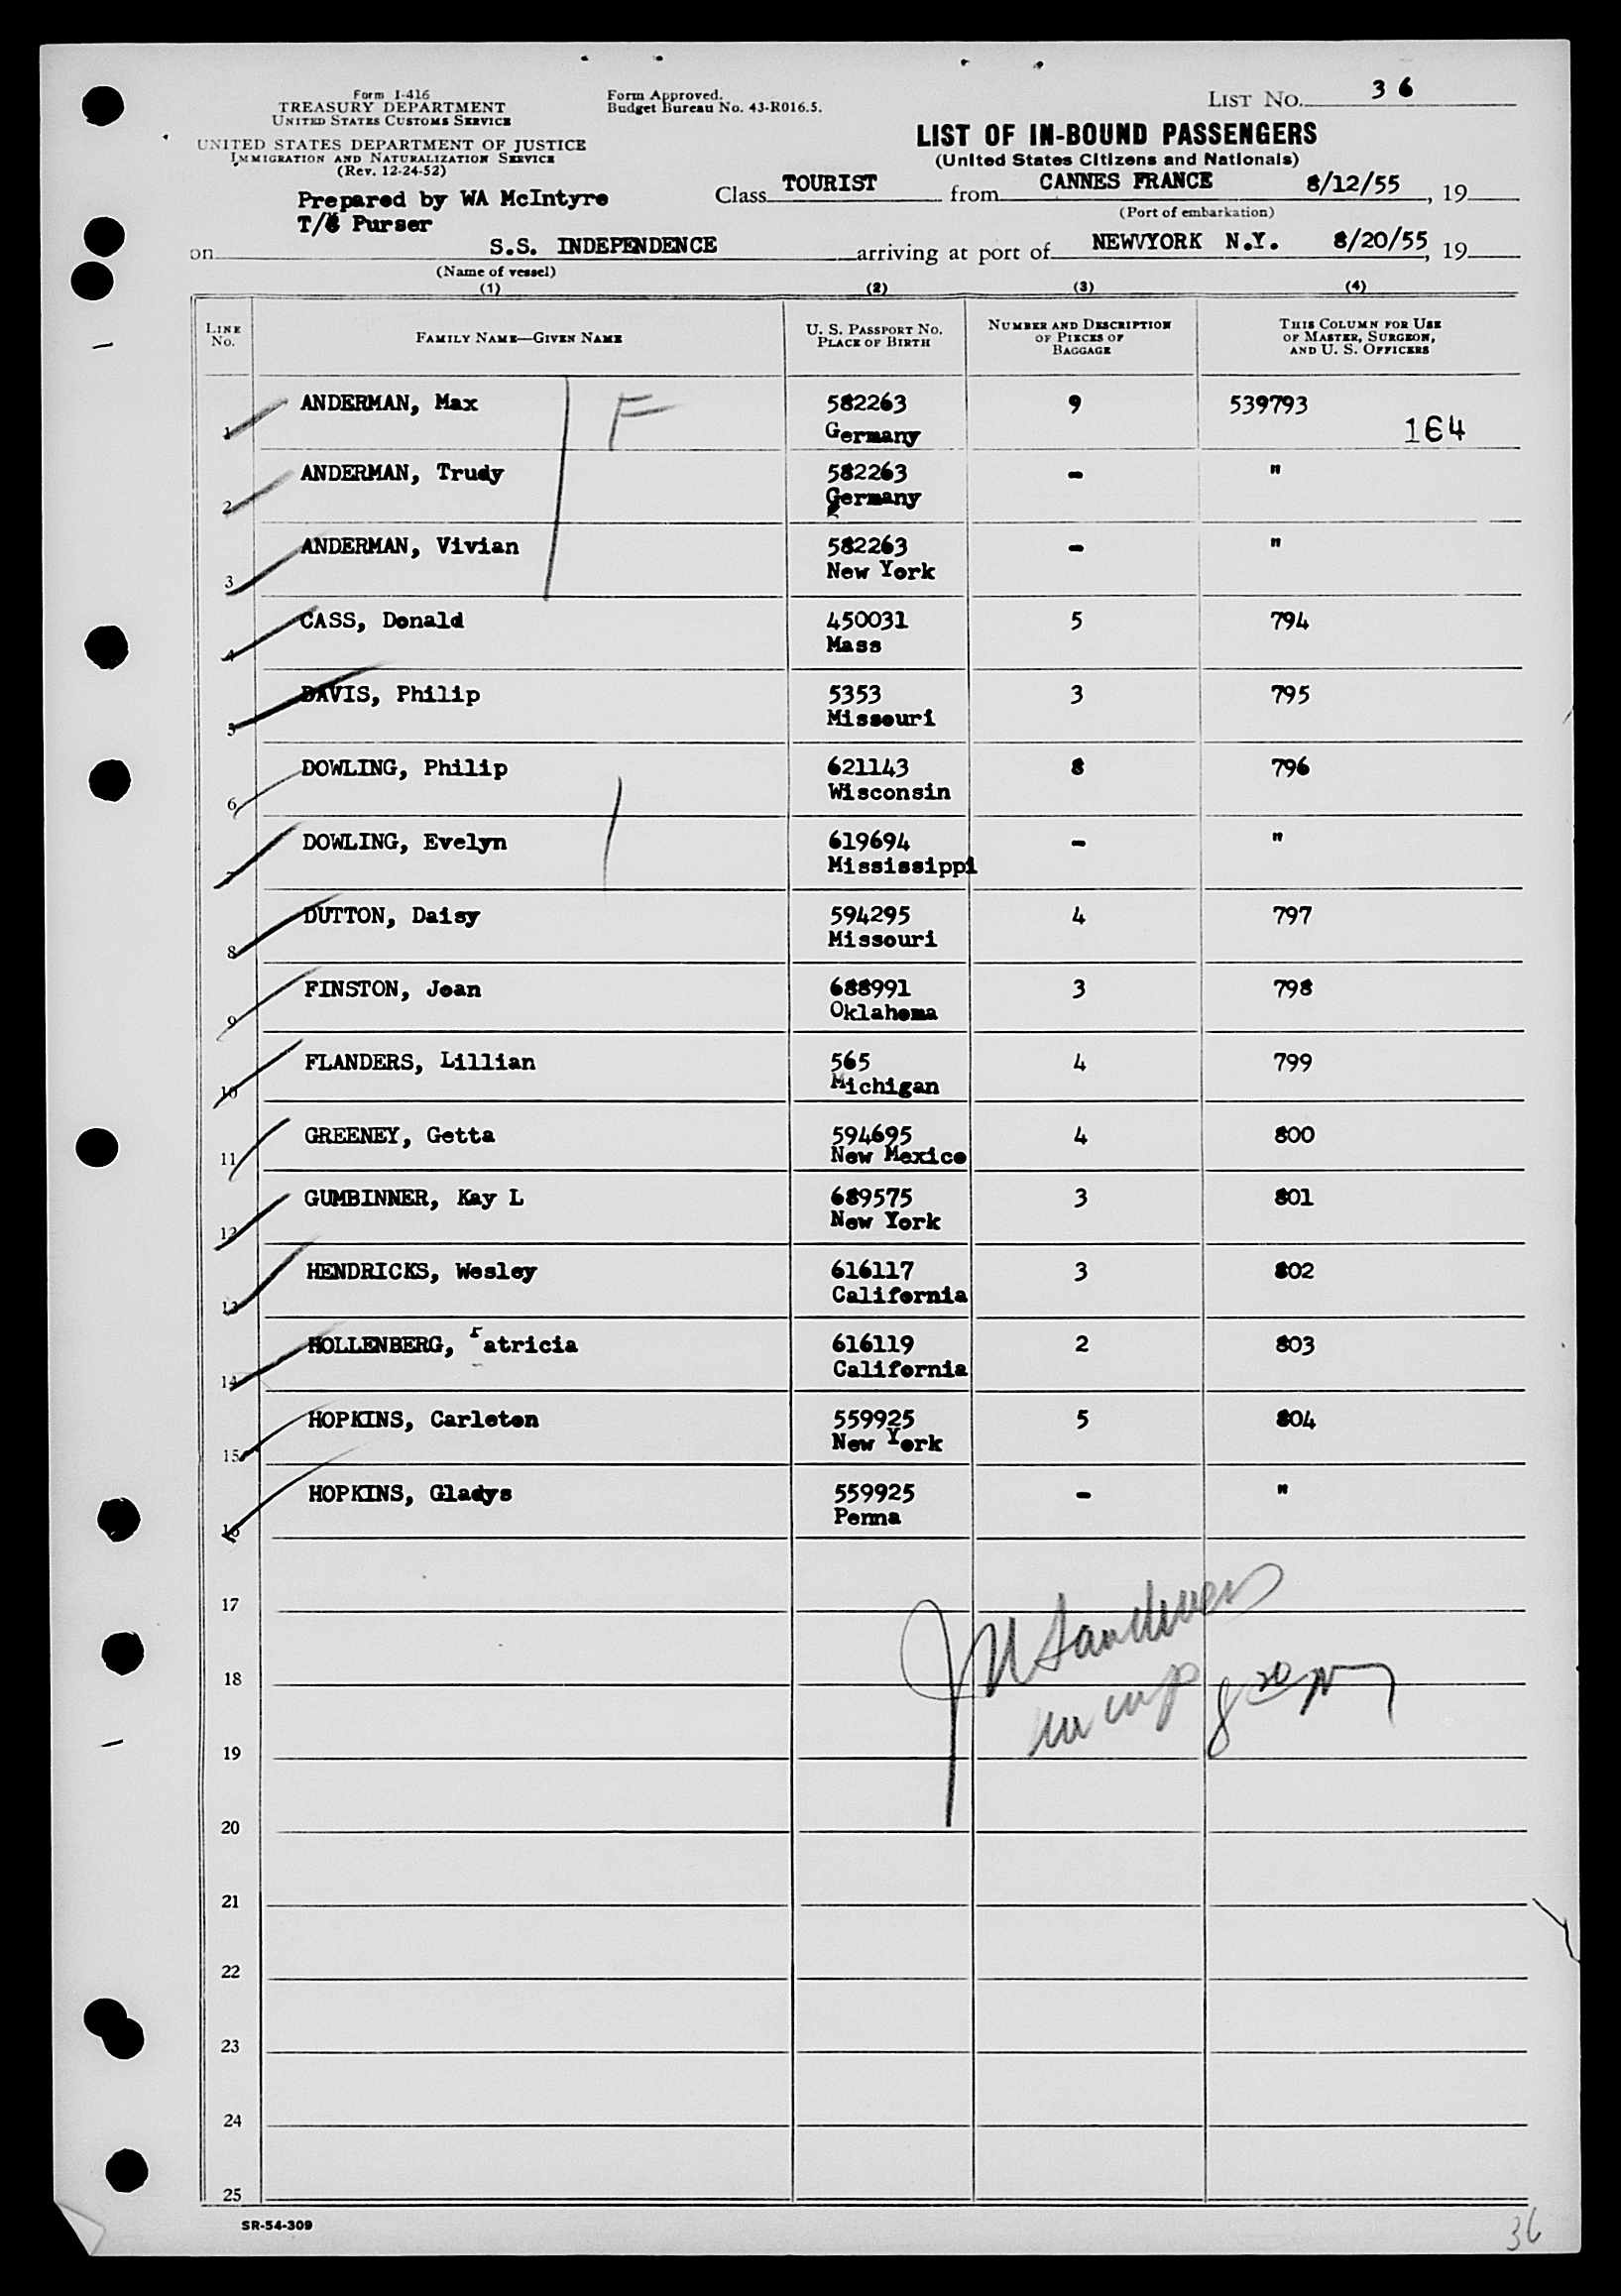 Form I-416
TREASURY DEPARTMENT
UNITED STATES CUSTOMS SERVICE
UNITED STATES DEPARTMENT OF JUSTICE
IMMIGRATION AND NATURALIZATION SERVICE
(Rev. 12-24-52)
Form Approved.
Budget Bureau No. 43-R016.5.
LIST NO. 36
LIST OF IN-BOUND PASSENGERS
(United States Citizens and Nationals)
Prepared by WA McIntyre
T/S Purser
Class TOURIST from CANNES FRANCE 8/12/55, 19
(Port of embarkation)
on S.S. INDEPENDENCE arriving at port of NEW YORK N.Y. 8/20/55, 19
(Name of vessel)
(1) (2) (3) (4)
LINE NO. FAMILY NAME—GIVEN NAME U. S. PASSPORT NO. PLACE OF BIRTH NUMBER AND DESCRIPTION OF PIECES OF BAGGAGE THIS COLUMN FOR USE OF MASTER, SURGEON, AND U. S. OFFICERS
ANDERMAN, Max F 582263 9 539793
1 Germany 164
ANDERMAN, Trudy 582263 - "
2 Germany
ANDERMAN, Vivian 582263 - "
3 New York
CASS, Donald 450031 5 794
4 Mass
DAVIS, Philip 5353 3 795
5 Missouri
DOWLING, Philip 621143 8 796
6 Wisconsin
DOWLING, Evelyn 619694 - "
7 Mississippi
DUTTON, Daisy 594295 4 797
8 Missouri
FINSTON, Joan 688991 3 798
9 Oklahoma
FLANDERS, Lillian 565 4 799
10 Michigan
GREENEY, Getta 594695 4 800
11 New Mexico
GUMBINNER, Kay L 689575 3 801
12 New York
HENDRICKS, Wesley 616117 3 802
13 California
HOLLENBERG, Patricia 616119 2 803
14 California
HOPKINS, Carleton 559925 5 804
15 New York
HOPKINS, Gladys 559925 - "
16 Penna
17
18
19
20
21
22
23
24
25
SR-54-309
36